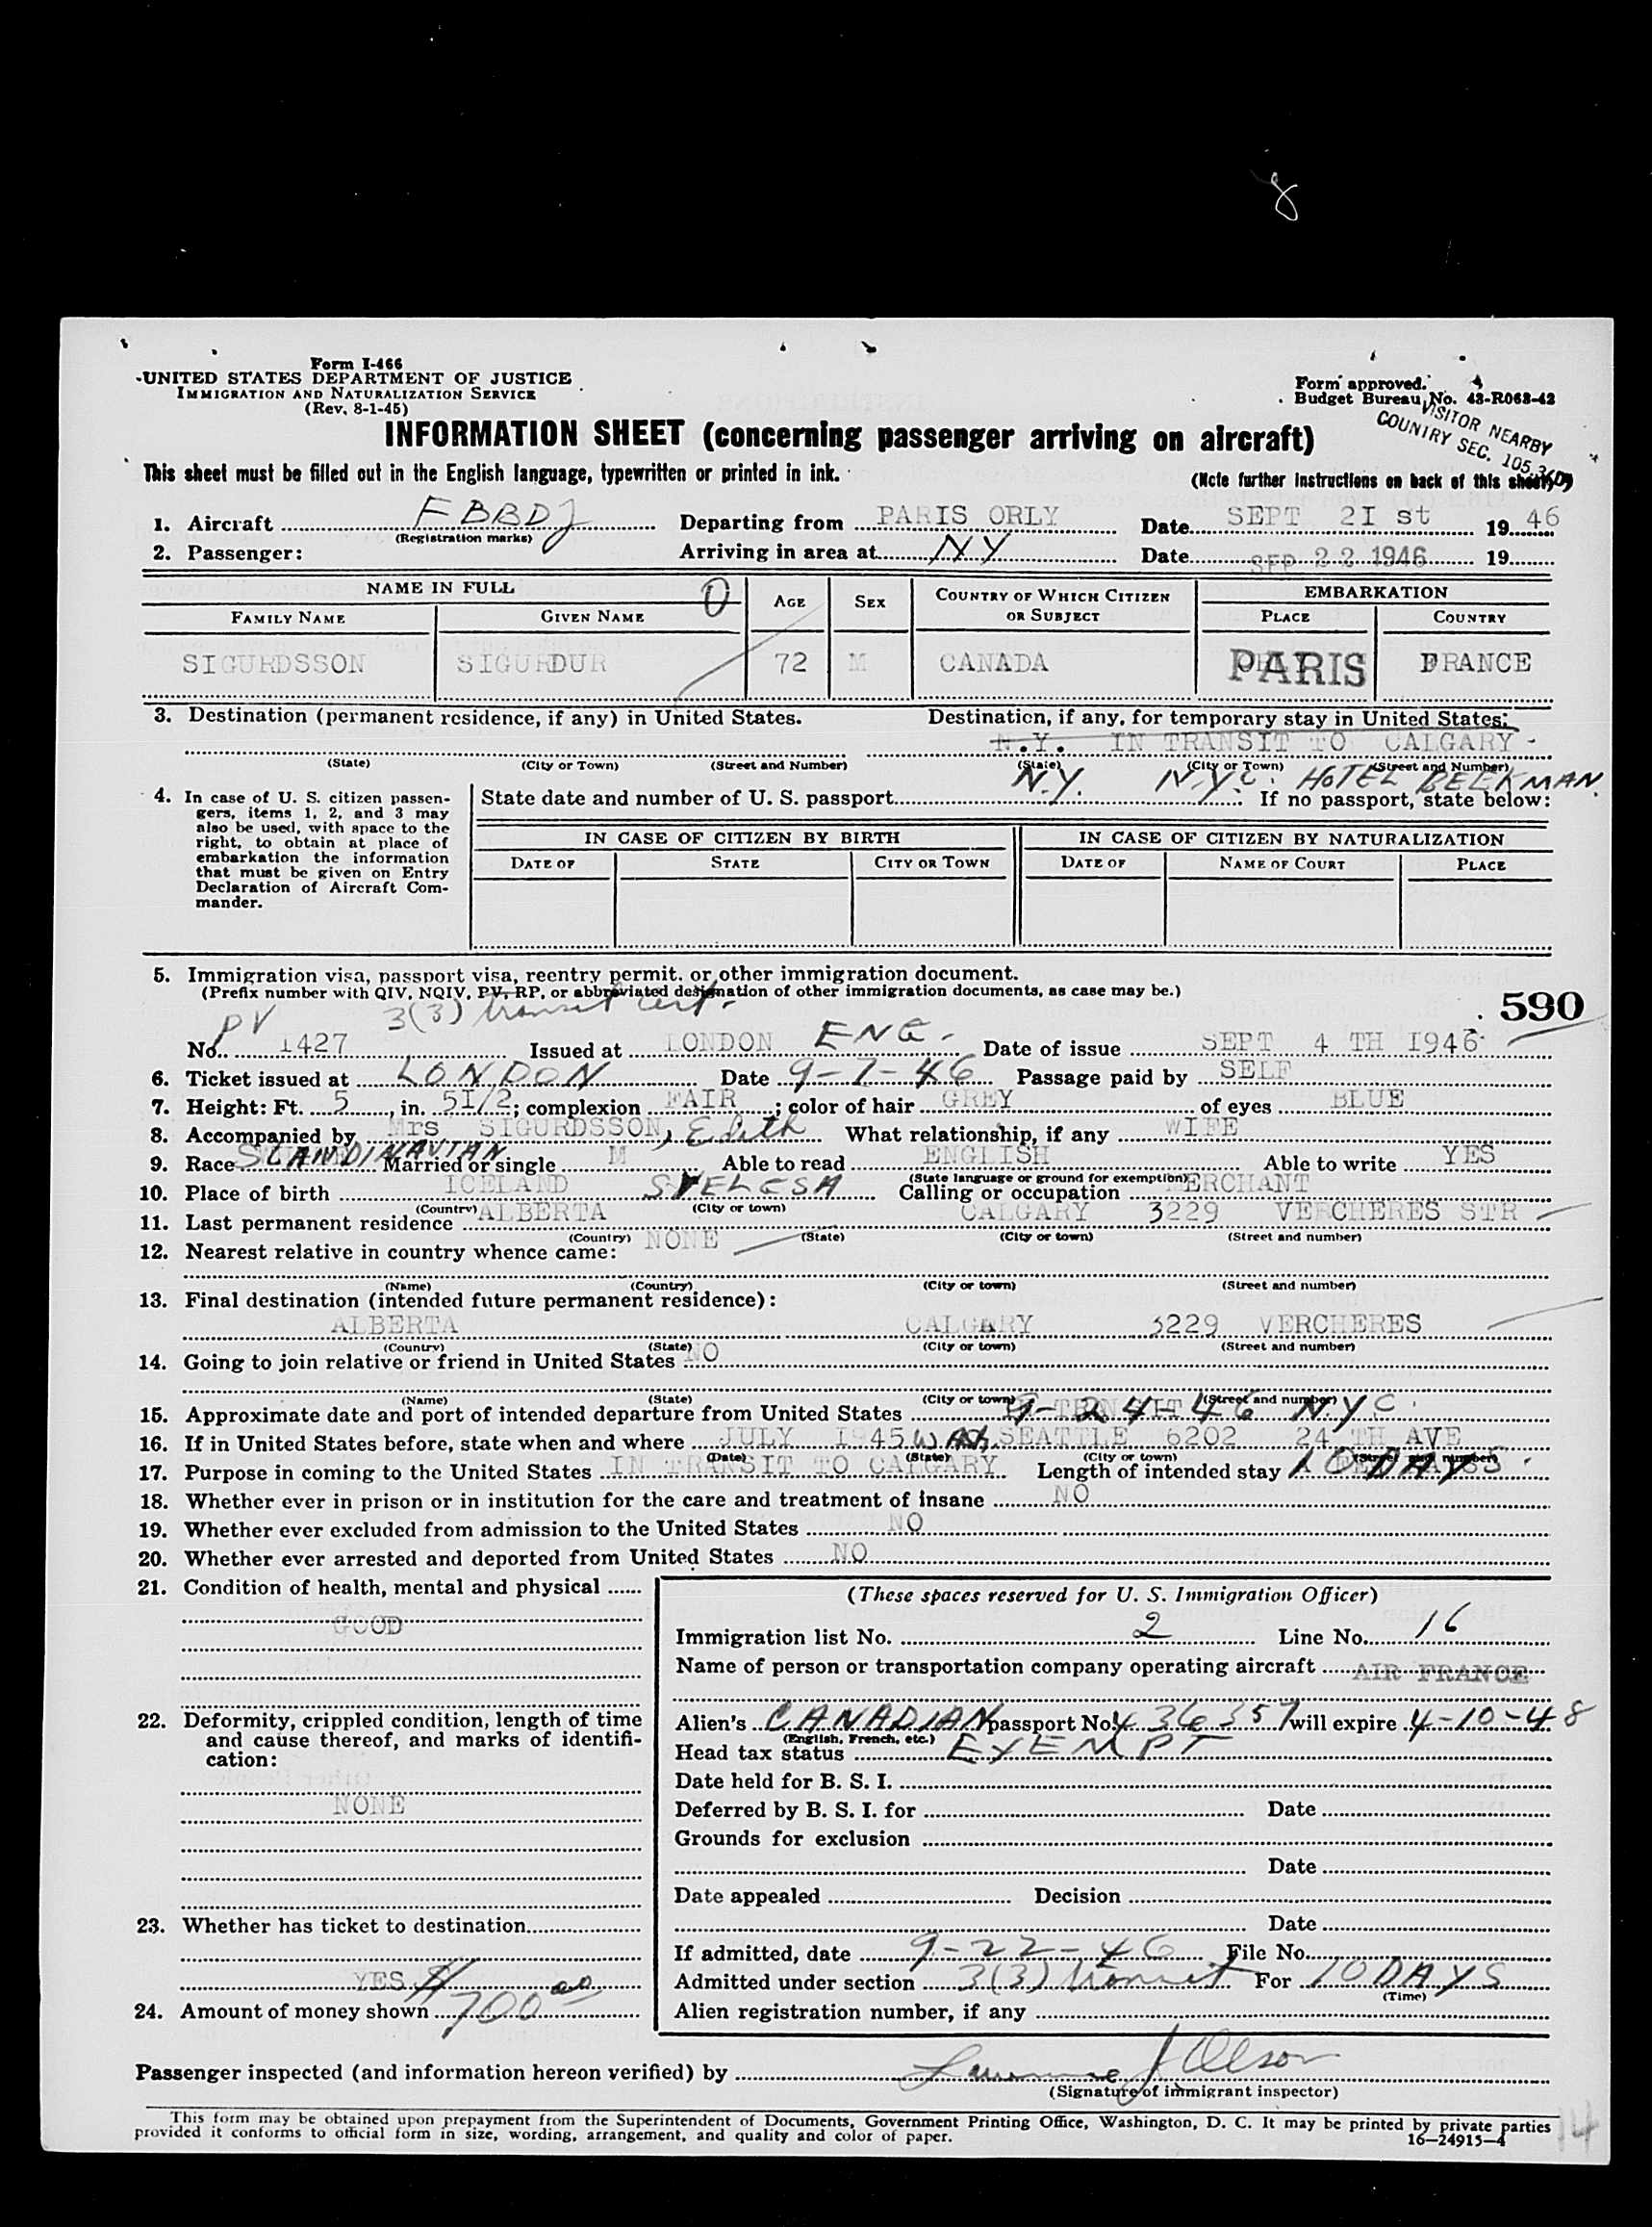 8
Form I-466
UNITED STATES DEPARTMENT OF JUSTICE
IMMIGRATION AND NATURALIZATION SERVICE
(Rev. 8-1-45)
Form approved.
Budget Bureau No. 43-R063-42
VISITOR NEARBY
COUNTRY SEC. 105.3(D)
INFORMATION SHEET (concerning passenger arriving on aircraft)
This sheet must be filled out in the English language, typewritten or printed in ink.
(Note further instructions on back of this sheet)
1. Aircraft FBBDJ Departing from PARIS ORLY Date SEPT 2I st 19 46
(Registration marks)
2. Passenger: Arriving in area at NY Date SEP 22 1946 19
NAME IN FULL 0 AGE SEX COUNTRY OF WHICH CITIZEN OR SUBJECT EMBARKATION
FAMILY NAME GIVEN NAME PLACE COUNTRY
SIGURDSSON SIGURDUR 72 M CANADA PARIS FRANCE
3. Destination (permanent residence, if any) in United States. Destination, if any, for temporary stay in United States:
N.Y. IN TRANSIT TO CALGARY -
(State) (City or Town) (Street and Number) (State) (City or Town) (Street and Number)
N.Y. N.Y.C. HOTEL BEEKMAN.
4. In case of U. S. citizen passengers, items 1, 2, and 3 may also be used, with space to the right, to obtain at place of embarkation the information that must be given on Entry Declaration of Aircraft Commander.
State date and number of U. S. passport If no passport, state below:
IN CASE OF CITIZEN BY BIRTH IN CASE OF CITIZEN BY NATURALIZATION
DATE OF STATE CITY OR TOWN DATE OF NAME OF COURT PLACE
5. Immigration visa, passport visa, reentry permit, or other immigration document.
(Prefix number with QIV, NQIV, PV, RP, or abbreviated designation of other immigration documents, as case may be.)
590
PV 3(3) transit cert.
No. 1427 Issued at LONDON ENG. Date of issue SEPT 4 TH I946
6. Ticket issued at LONDON Date 9-7-46 Passage paid by SELF
7. Height: Ft. 5, in. 5I/2; complexion FAIR; color of hair GREY of eyes BLUE
8. Accompanied by Mrs SIGURDSSON, Edith What relationship, if any WIFE
9. Race SCANDINAVIAN Married or single M Able to read ENGLISH Able to write YES
(State language or ground for exemption)
10. Place of birth ICELAND Calling or occupation MERCHANT
(Country) (City or town)
11. Last permanent residence ALBERTA CALGARY 3229 VERCHERES STR
(Country) (State) (City or town) (Street and number)
12. Nearest relative in country whence came: NONE
(Name) (Country) (City or town) (Street and number)
13. Final destination (intended future permanent residence):
ALBERTA CALGARY 3229 VERCHERES
(Country) (State) (City or town) (Street and number)
14. Going to join relative or friend in United States NO
(Name) (State) (City or town) (Street and number)
15. Approximate date and port of intended departure from United States 9-24-46 NYC.
16. If in United States before, state when and where JULY 1945 WASH, SEATTLE 6202 24 TH AVE
(Date) (State) (City or town) (Street and number)
17. Purpose in coming to the United States IN TRANSIT TO CALGARY Length of intended stay 10 DAYS.
18. Whether ever in prison or in institution for the care and treatment of insane NO
19. Whether ever excluded from admission to the United States NO
20. Whether ever arrested and deported from United States NO
21. Condition of health, mental and physical
GOOD
22. Deformity, crippled condition, length of time and cause thereof, and marks of identification:
NONE
23. Whether has ticket to destination
YES
24. Amount of money shown $700.00
(These spaces reserved for U. S. Immigration Officer)
Immigration list No. 2 Line No. 16
Name of person or transportation company operating aircraft AIR FRANCE
Alien's CANADIAN passport No. 436357 will expire 4-10-48
(English, French, etc.)
Head tax status EXEMPT
Date held for B. S. I.
Deferred by B. S. I. for Date
Grounds for exclusion
Date
Date appealed Decision
Date
If admitted, date 9-22-46 File No.
Admitted under section 3(3) transit For 10 DAYS
(Time)
Alien registration number, if any
Passenger inspected (and information hereon verified) by Lawrence J Olson
(Signature of immigrant inspector)
This form may be obtained upon prepayment from the Superintendent of Documents, Government Printing Office, Washington, D. C. It may be printed by private parties
provided it conforms to official form in size, wording, arrangement, and quality and color of paper.
16—24915-4
14